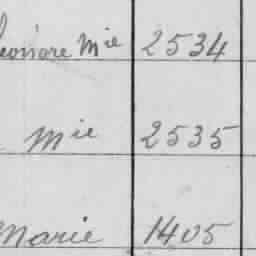 eonore Mie 2534
Mie 2535
Marie 1405